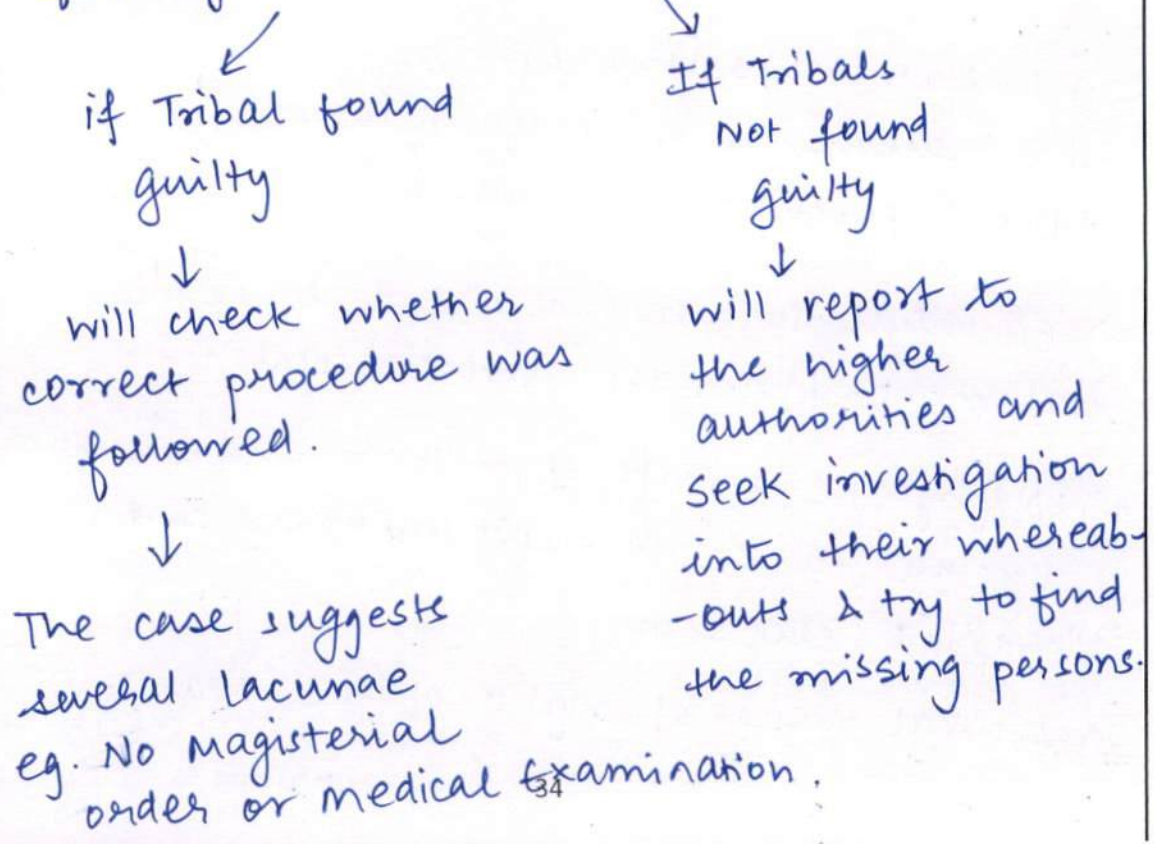 if Tribal found
guilty
↓
will check whether
correct procedure was
followed.
↓
The case suggests
several lacunae
eg. No Magisterial
order or medical Examination.
If Tribals
Not found
guilty
↓
will report to
the higher
authorities and
seek investigation
into their whereab-
-outs & try to find
the missing persons.
34